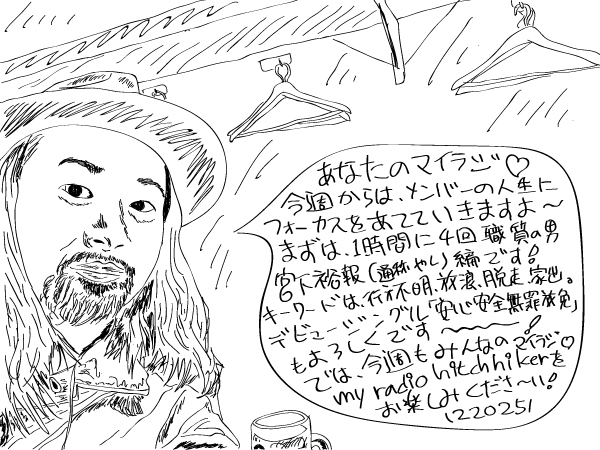 あなたのマイラジ♡
今週からは、メンバーの人生に
フォーカスをあてていきますよ〜
まずは、1時間に4回職質の男
宮下裕報(通称やし)編です!
キーワードは、行方不明、放浪、脱走、家出。
デビューシングル「安心安全無罪放免」
もよろしくです〜!
では、今週もみんなのマイラジ♡
my radio hitchhikerを
お楽しみくださ〜い!
1220251